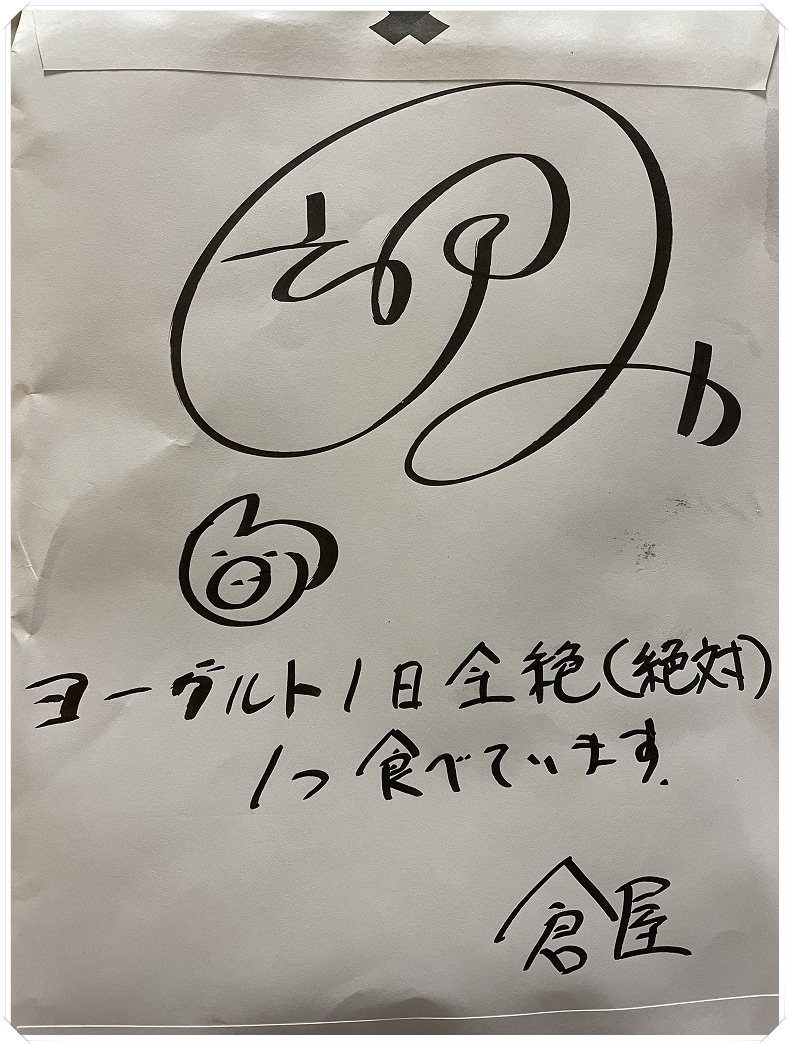 ヨーグルト1日全絶(絶対)
1つ食べています.
倉屋